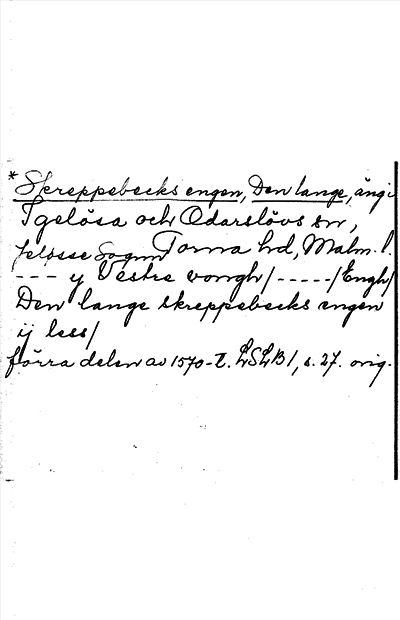 *Skreppebecks engen, Den lange, äng i
Igelösa och Odarslövs snr,
felosse Sognn Torna hd, Malm. l.
--- y Vestre vongh/-----/Engh/
Den lange skreppebecks engen
ij less/
förra delen av 1570-t. LSLB 1, s. 27. orig.